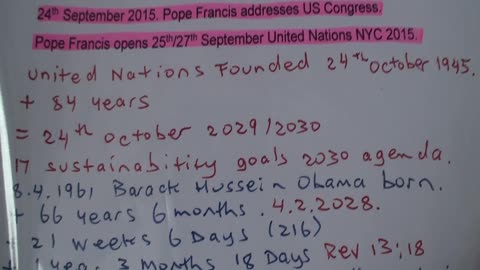 24th September 2015. Pope Francis addresses US Congress.
Pope Francis opens 25th/27th September United Nations NYC 2015.
United Nations Founded 24th October 1945.
+ 84 years
= 24th October 2029/2030
17 sustainability goals 2030 agenda.
8.4.1961 Barack Hussein Obama born.
+ 66 years 6 months. 4.2.2028.
+ 21 weeks 6 Days (216)
+ 1 year 3 months 18 Days Rev 13:18